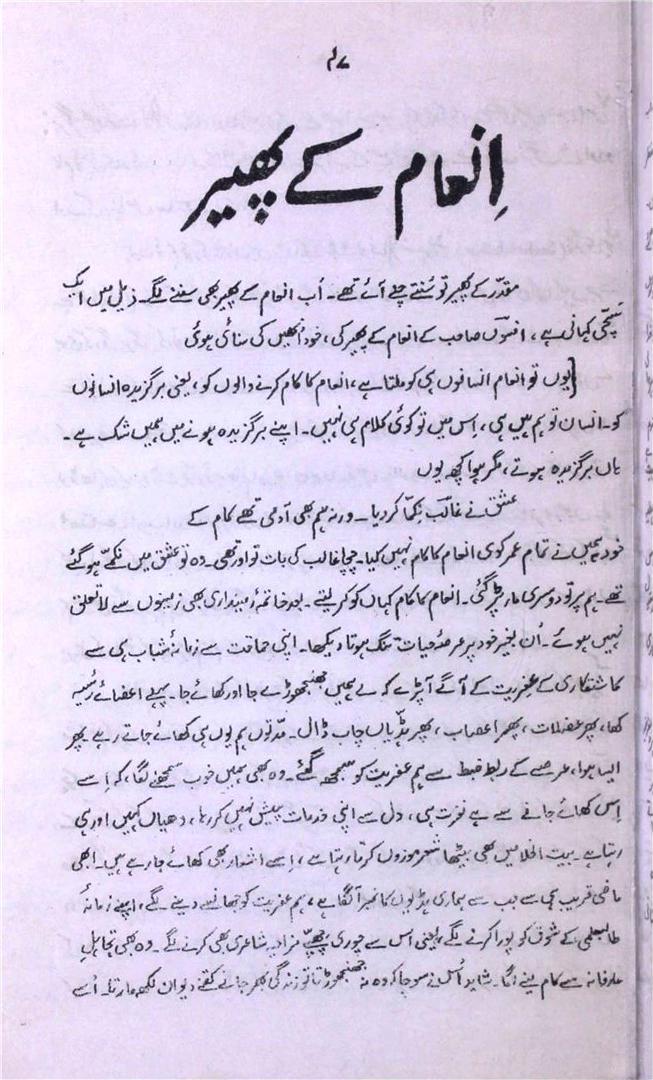 ۴۷
اِنعام کے پھیر
مقدّر کے پھیر تو سُنتے چلے آئے تھے۔ اَب انعام کے پھیر بھی سننے لگے۔ ذیل میں ایک
سچّی کہانی ہے، صاحب کے انعام کے پھیر کی، خود اُنھیں کی سنائی ہوئی
یوں تو انعام انسانوں ہی کو ملتا ہے، انعام کا کام کرنے والوں کو، یعنی برگزیدہ انسانوں
کو۔ انسان تو ہم ہیں ہی، اِس میں تو کوئی کلام ہی نہیں۔ اپنے برگزیدہ ہونے میں ہمیں شک ہے۔
ہاں برگزیدہ ہوتے، مگر ہوا کچھ یوں
عشق نے غالبؔ نکمّا کر دیا۔ ورنہ ہم بھی آدمی تھے کام کے
خود ہمیں نے تمام عمر کوئی انعام کا کام نہیں کیا۔ چچا غالب کی بات تو اور تھی۔ وہ تو عشق میں نکمّے ہو گئے
تھے۔ ہم پر تو دوسری مار پڑ گئی۔ انعام کا کام کہاں کو کر لیتے۔ بعد خاتمۂ زمینداری بھی زمینوں سے لا تعلق
نہیں ہوئے۔ اُن بغیر خود پر عرصۂ حیات تنگ ہوتا دیکھا۔ اپنی حماقت سے زمانۂ شباب ہی سے
کاشتکاری کے عفریت کے آگے آ پڑے کہ لے ہمیں بھنبھوڑے جا اور کھائے جا۔ پہلے اعضائے رئیسہ
کھا، پھر عضلات، پھر اعصاب، پھر ہڈّیاں چاب ڈال۔ مدّتوں ہم یوں ہی کھائے جاتے رہے۔ پھر
ایسا ہوا، عرصے کے ربط ضبط سے ہم عفریت کو سمجھ گئے۔ وہ بھی ہمیں خوب سمجھنے لگا، کہ اِسے
اِس کھائے جانے سے ہے نفرت ہی، دل سے اپنی خدمات پیش نہیں کر رہا، دھیان کہیں اور ہی
رہتا ہے۔ بیت الخلا میں بھی بیٹھا شعر موزوں کرتا رہتا ہے، اِسے اشعار بھی کھائے جا رہے ہیں۔ ابھی
ماضی قریب ہی سے جب سے ہماری ہڈّیوں کا نمبر آ گیا ہے، ہم عفریت کو جھانسے دینے لگے، اپنے زمانۂ
طالبعلمی کے شوق کو پورا کرنے لگے، یعنی اس سے چوری چھپے مزاحیہ شاعری بھی کرنے لگے۔ وہ بھی تجاہلِ
عارفانہ سے کام لینے لگا۔ شاید اُس نے سوچا کہ وہ نہ بھنبھوڑتا تو زندگی بھر جانے کتنے دیوان لکھ مارتا۔ اُسے